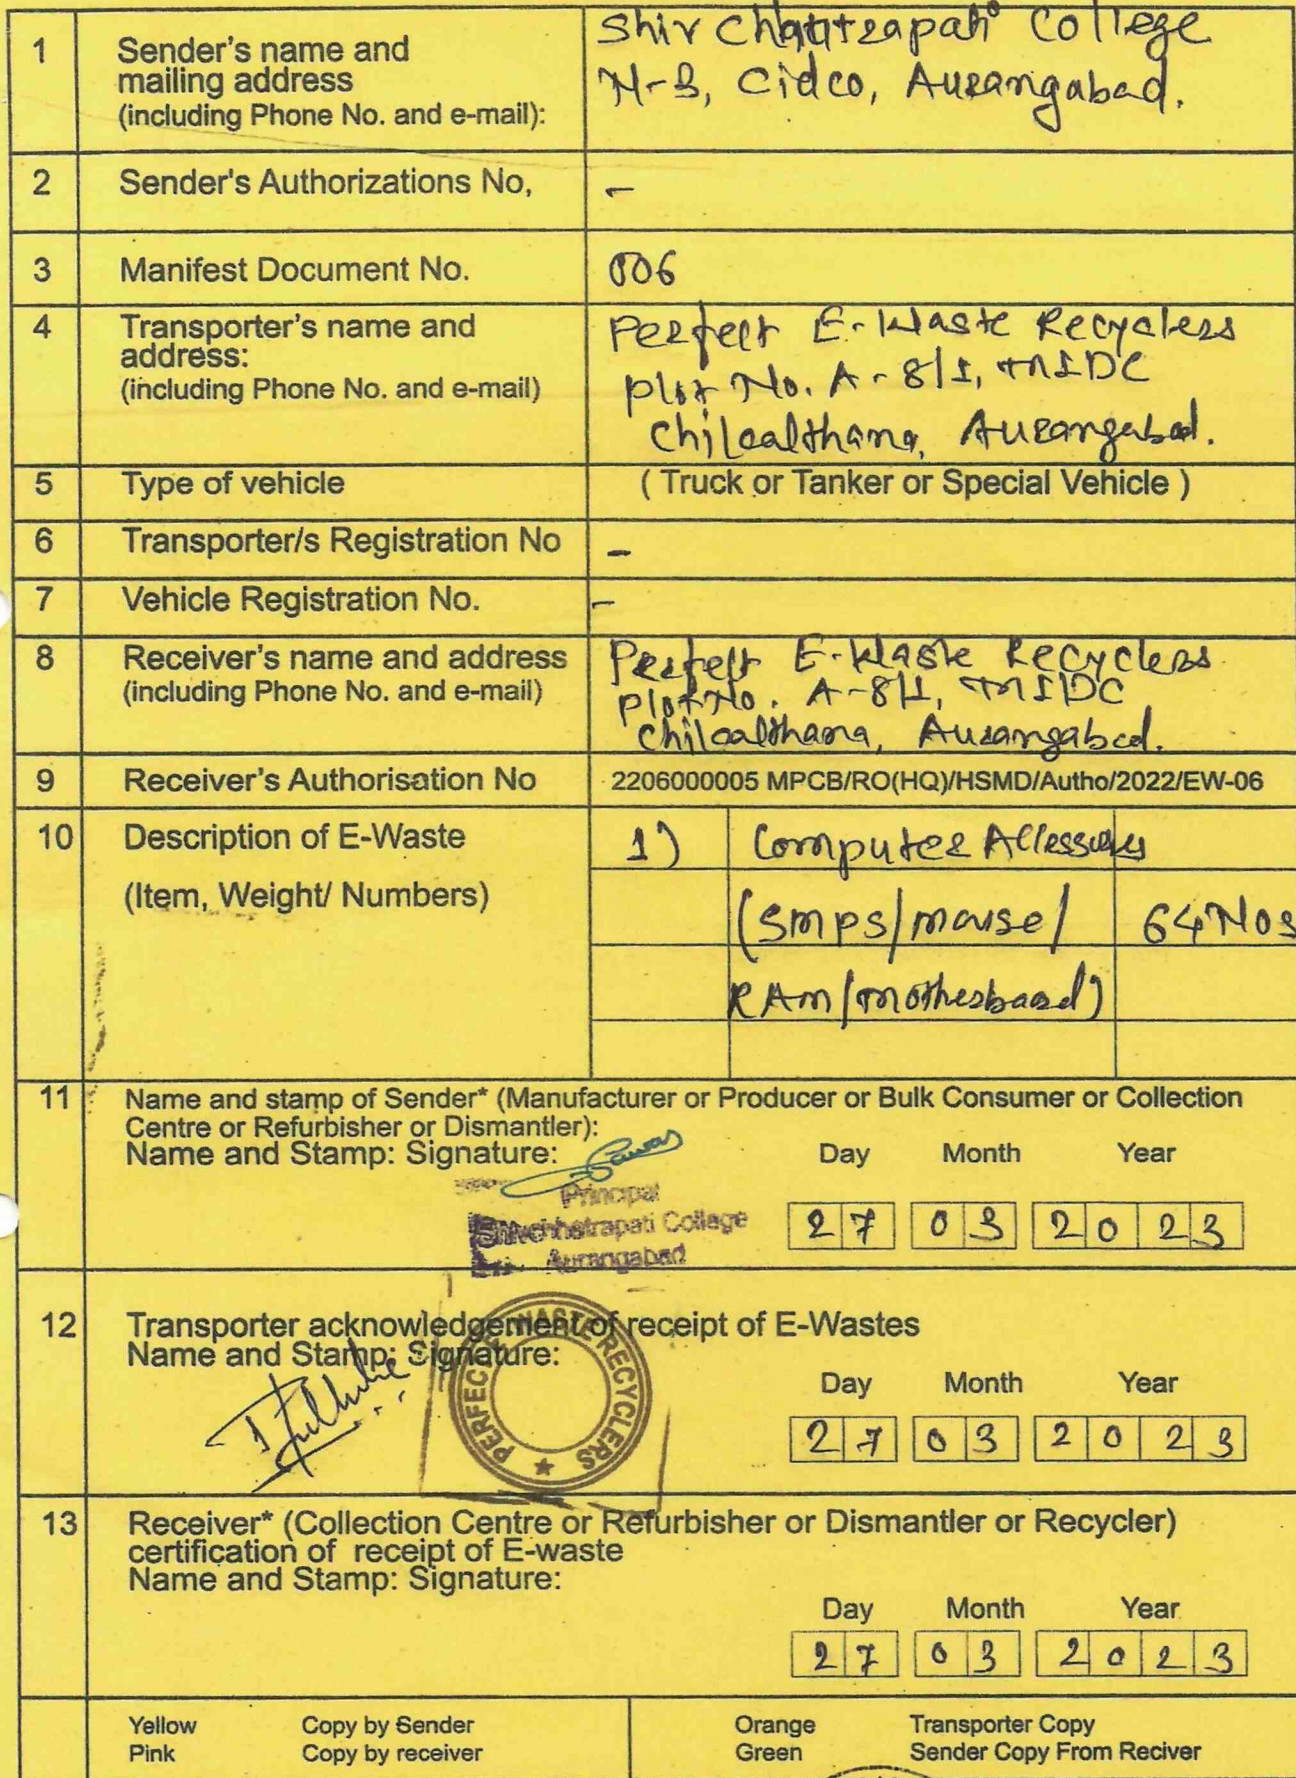 1 Sender's name and
mailing address
(including Phone No. and e-mail):
Shiv Chhatrapati College
N-3, Cidco, Aurangabad.
2 Sender's Authorizations No, -
3 Manifest Document No. 006
4 Transporter's name and
address:
(including Phone No. and e-mail)
Perfect E-Waste Recyclers
Plot No. A-8/1, MIDC
Chikalthana, Aurangabad.
5 Type of vehicle ( Truck or Tanker or Special Vehicle )
6 Transporter/s Registration No -
7 Vehicle Registration No. -
8 Receiver's name and address
(including Phone No. and e-mail)
Perfect E-Waste Recyclers
Plot No. A-8/1, MIDC
Chikalthana, Aurangabad.
9 Receiver's Authorisation No 2206000005 MPCB/RO(HQ)/HSMD/Autho/2022/EW-06
10 Description of E-Waste
(Item, Weight/ Numbers)
1) Computer
(SMPS/mouse/ 64 Nos
RAM/motherboard)
11 Name and stamp of Sender* (Manufacturer or Producer or Bulk Consumer or Collection
Centre or Refurbisher or Dismantler):
Name and Stamp: Signature:
Day Month Year
27 03 2023
Principal
Shivchhatrapati College
Aurangabad
12 Transporter acknowledgement of receipt of E-Wastes
Name and Stamp: Signature:
PERFECT E WASTE RECYCLERS
Day Month Year
27 03 2023
13 Receiver* (Collection Centre or Refurbisher or Dismantler or Recycler)
certification of receipt of E-waste
Name and Stamp: Signature:
Day Month Year
27 03 2023
Yellow Copy by Sender Orange Transporter Copy
Pink Copy by receiver Green Sender Copy From Reciver